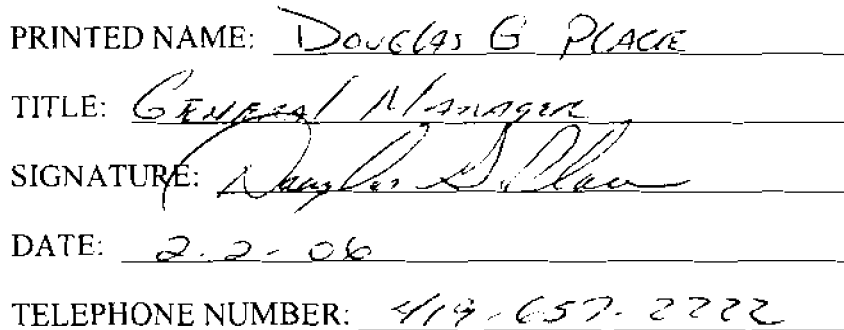 PRINTED NAME: Douglas G Place
TITLE: General Manager
SIGNATURE: Douglas G. Place
DATE: 2-2-06
TELEPHONE NUMBER: 419-657-2222